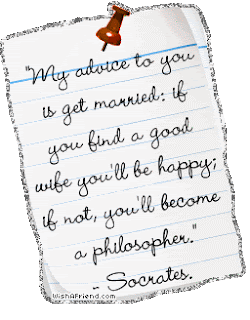 "My advice to you
is get married: if
you find a good
wife you'll be happy;
if not, you'll become
a philosopher."
- Socrates.
WishAFriend.com